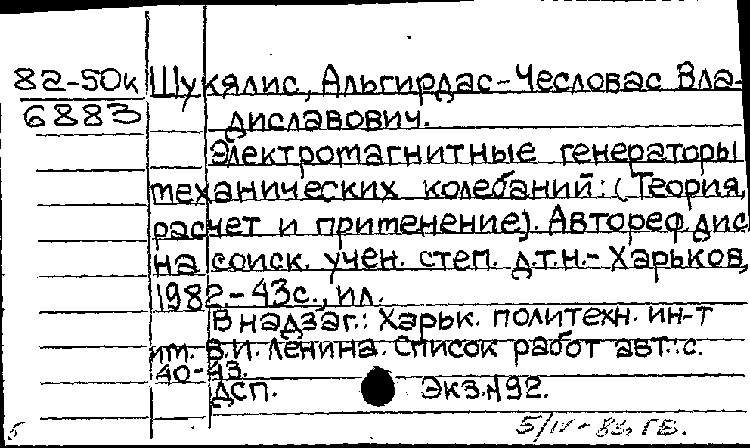 82-50к
6883
Шукялис, Альгирдас-Чесловас Вла-
диславович.
Электромагнитные генераторы
механических колебаний: (Теория,
расчет и применение). Автореф. дис
на соиск. учен. степ. д.т.н.- Харьков,
1982.- 43с., ил.
В надзаг.: Харьк. политехн. ин-т
им. В.И. Ленина. Список работ авт.: с.
40-43.
ДСП. Экз.№92.
5/IV-83. ГВ.